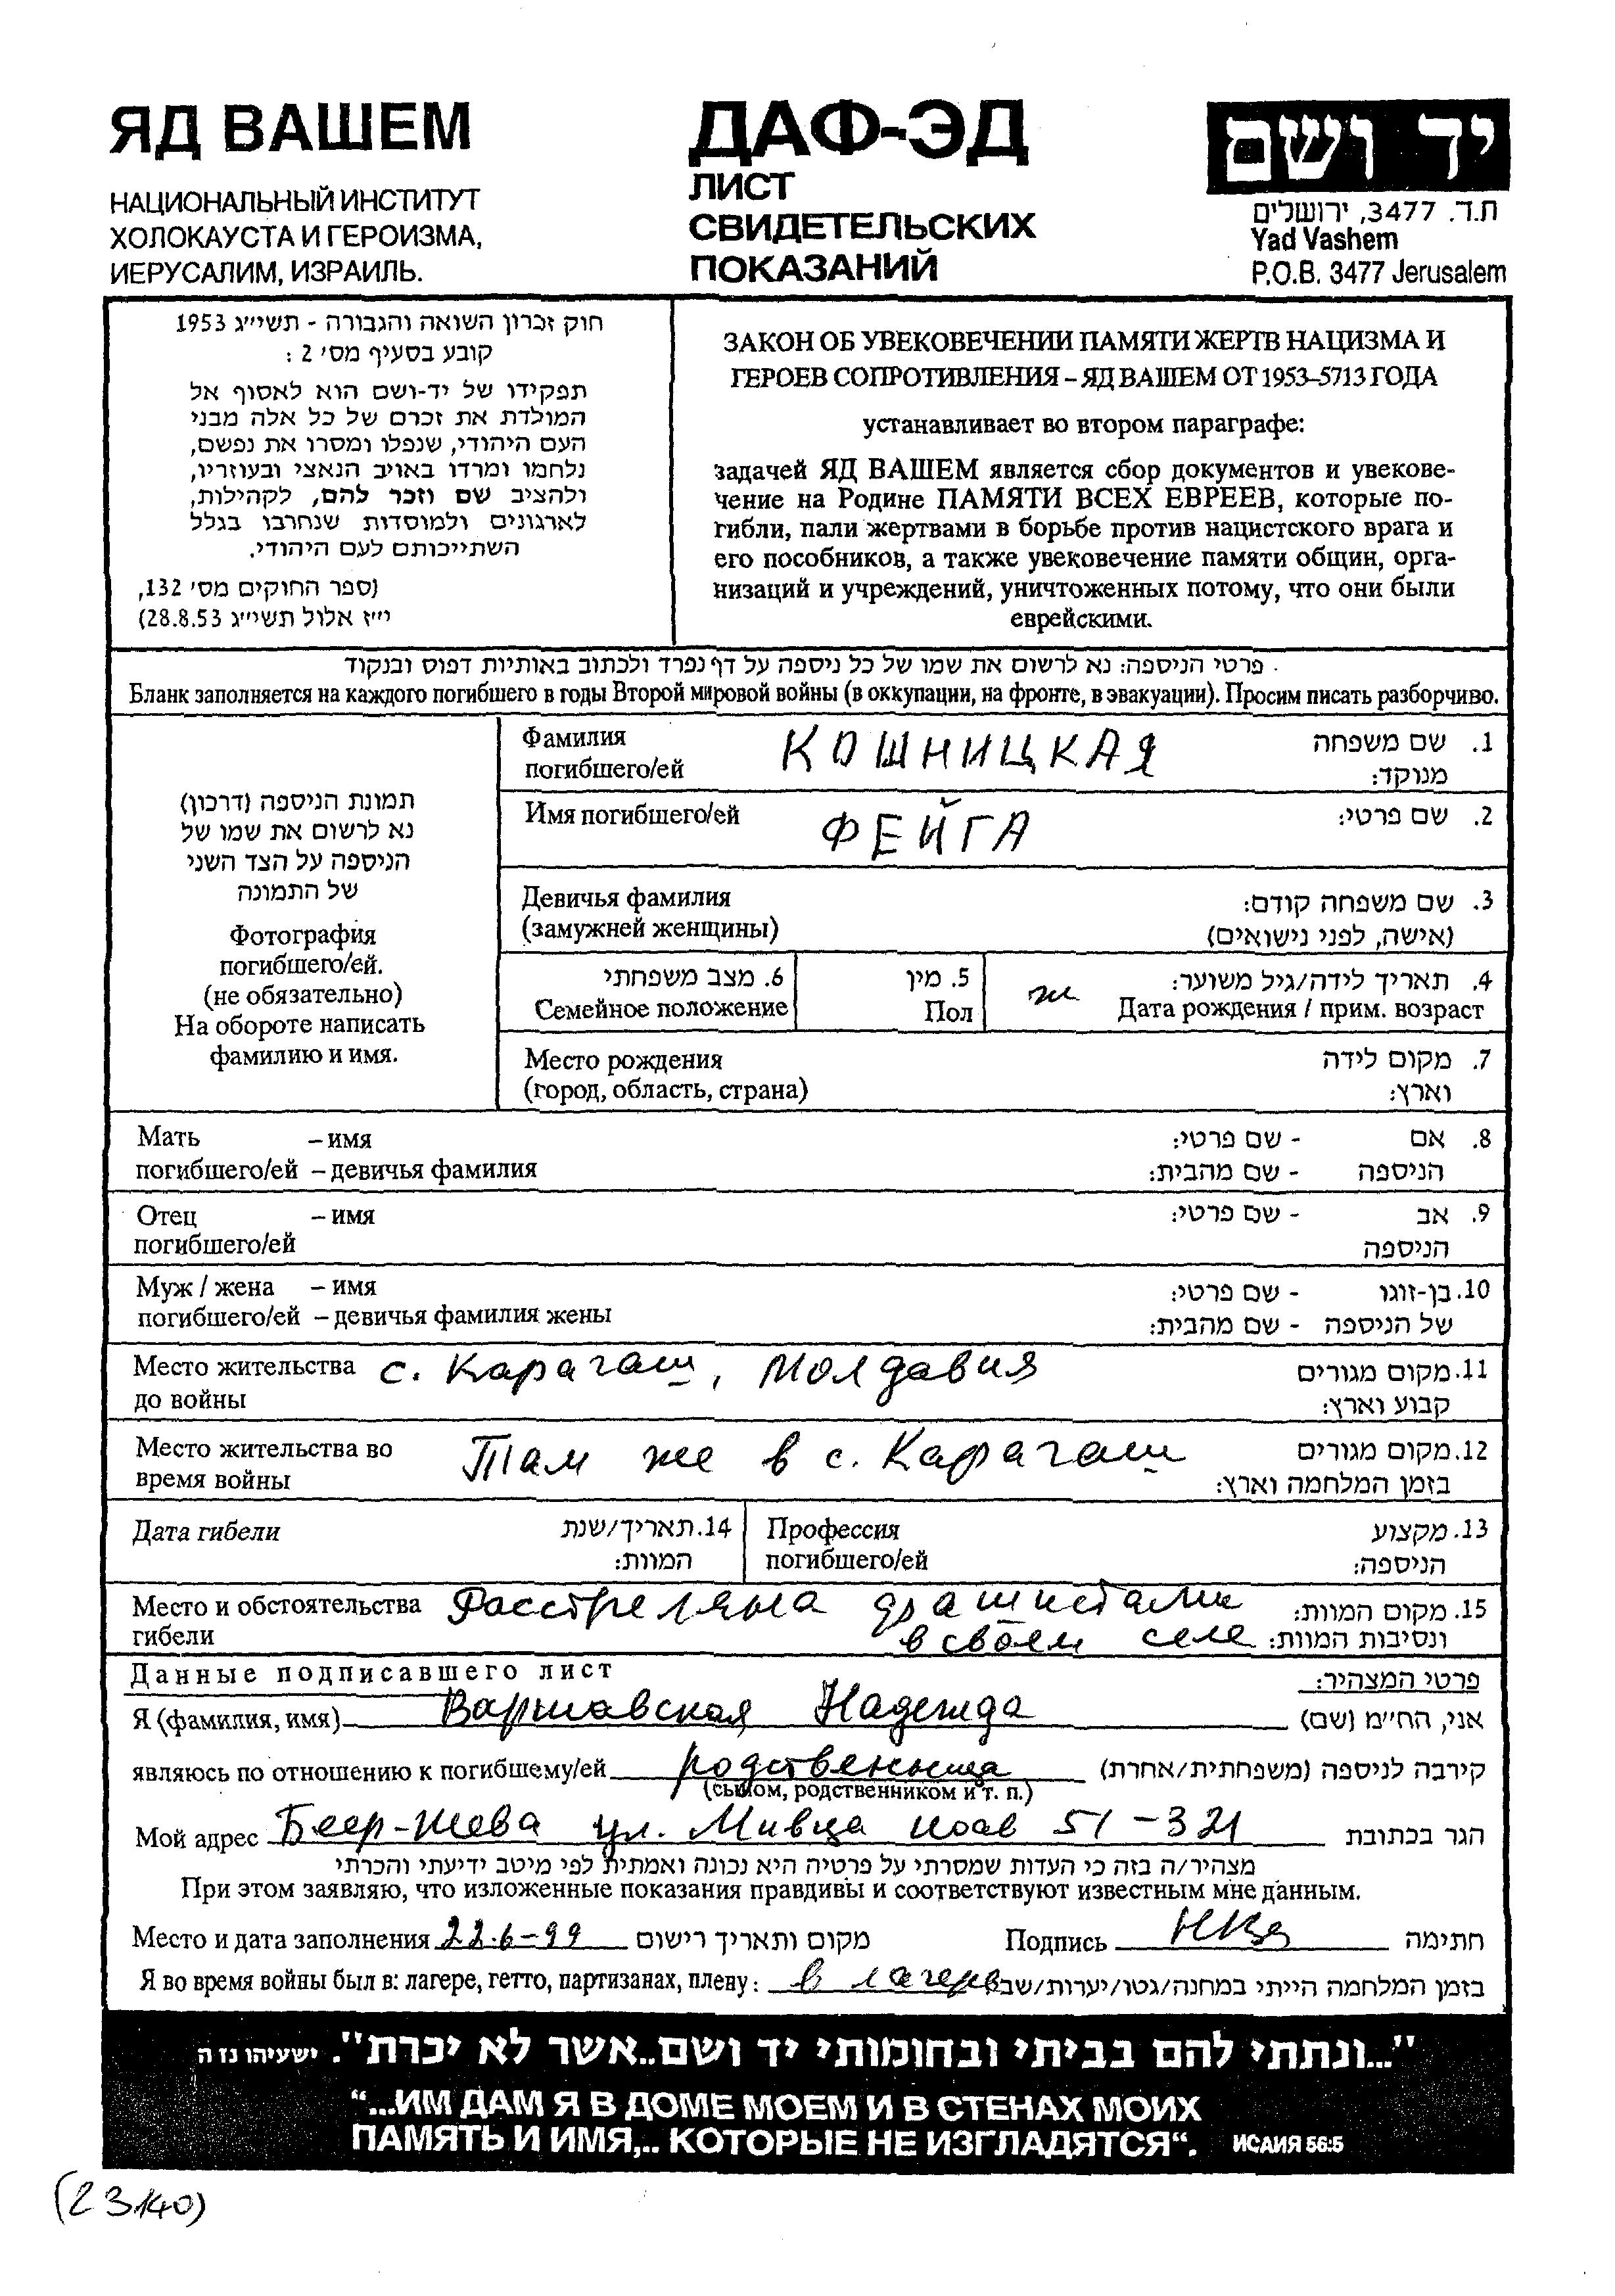 ЯД ВАШЕМ
НАЦИОНАЛЬНЫЙ ИНСТИТУТ
ХОЛОКАУСТА И ГЕРОИЗМА,
ИЕРУСАЛИМ, ИЗРАИЛЬ.
ДАФ-ЭД
ЛИСТ
СВИДЕТЕЛЬСКИХ
ПОКАЗАНИЙ
יד ושם
ת.ד. 3477, ירושלים
Yad Vashem
P.O.B. 3477 Jerusalem
חוק זכרון השואה והגבורה - תשי״ג 1953
קובע בסעיף מס׳ 2 :
תפקידו של יד-ושם הוא לאסוף אל
המולדת את זכרם של כל אלה מבני
העם היהודי, שנפלו ומסרו את נפשם,
נלחמו ומרדו באויב הנאצי ובעוזריו,
ולהציב שם וזכר להם, לקהילות,
לארגונים ולמוסדות שנחרבו בגלל
השתייכותם לעם היהודי.
(ספר החוקים מס׳ 132,
י״ז אלול תשי״ג 28.8.53)
ЗАКОН ОБ УВЕКОВЕЧЕНИИ ПАМЯТИ ЖЕРТВ НАЦИЗМА И
ГЕРОЕВ СОПРОТИВЛЕНИЯ – ЯД ВАШЕМ ОТ 1953–5713 ГОДА
устанавливает во втором параграфе:
задачей ЯД ВАШЕМ является сбор документов и увекове-
чение на Родине ПАМЯТИ ВСЕХ ЕВРЕЕВ, которые по-
гибли, пали жертвами в борьбе против нацистского врага и
его пособников, а также увековечение памяти общин, орга-
низаций и учреждений, уничтоженных потому, что они были
еврейскими.
פרטי הניספה: נא לרשום את שמו של כל ניספה על דף נפרד ולכתוב באותיות דפוס ובנקוד
Бланк заполняется на каждого погибшего в годы Второй мировой войны (в оккупации, на фронте, в эвакуации). Просим писать разборчиво.
תמונת הניספה (דרכון)
נא לרשום את שמו של
הניספה על הצד השני
של התמונה
Фотография
погибшего/ей.
(не обязательно)
На обороте написать
фамилию и имя.
Фамилия КОШНИЦКАЯ 1. שם משפחה
погибшего/ей מנוקד:
Имя погибшего/ей ФЕЙГА 2. שם פרטי:
Девичья фамилия 3. שם משפחה קודם:
(замужней женщины) (אישה, לפני נישואים)
6. מצב משפחתי 5. מין ж 4. תאריך לידה/גיל משוער:
Семейное положение Пол Дата рождения / прим. возраст
Место рождения 7. מקום לידה
(город, область, страна) וארץ:
Мать – имя 8. אם - שם פרטי:
погибшего/ей – девичья фамилия הניספה - שם מהבית:
Отец – имя 9. אב - שם פרטי:
погибшего/ей הניספה
Муж / жена – имя 10. בן-זוגו - שם פרטי:
погибшего/ей – девичья фамилия жены של הניספה - שם מהבית:
Место жительства с. Карагаш, Молдавия 11. מקום מגורים
до войны קבוע וארץ:
Место жительства во Там же в с. Карагаш 12. מקום מגורים
время войны בזמן המלחמה וארץ:
Дата гибели 14. תאריך/שנת Профессия 13. מקצוע
המוות: погибшего/ей הניספה:
Место и обстоятельства Расстреляна фашистами 15. מקום המוות:
гибели в своем селе ונסיבות המוות:
Данные подписавшего лист פרטי המצהיר:
Я (фамилия, имя) Варшавская Надежда אני, הח״מ (שם)
являюсь по отношению к погибшему/ей родственница קירבה לניספה (משפחתית/אחרת)
(сыном, родственником и т. п.)
Мой адрес Беер-Шева ул. Мивца Иоав 51 – 321 הגר בכתובת
מצהיר/ה בזה כי העדות שמסרתי על פרטיה היא נכונה ואמתית לפי מיטב ידיעתי והכרתי
При этом заявляю, что изложенные показания правдивы и соответствуют известным мне данным.
Место и дата заполнения 22.6-99 מקום ותאריך רישום Подпись חתימה
Я во время войны был в: лагере, гетто, партизанах, плену: в лагере בזמן המלחמה הייתי במחנה/גטו/יערות/שבי
"...ונתתי להם בביתי ובחומותי יד ושם..אשר לא יכרת". ישעיהו נז ה
“...ИМ ДАМ Я В ДОМЕ МОЕМ И В СТЕНАХ МОИХ
ПАМЯТЬ И ИМЯ,.. КОТОРЫЕ НЕ ИЗГЛАДЯТСЯ“. ИСАИЯ 56:5
(23140)